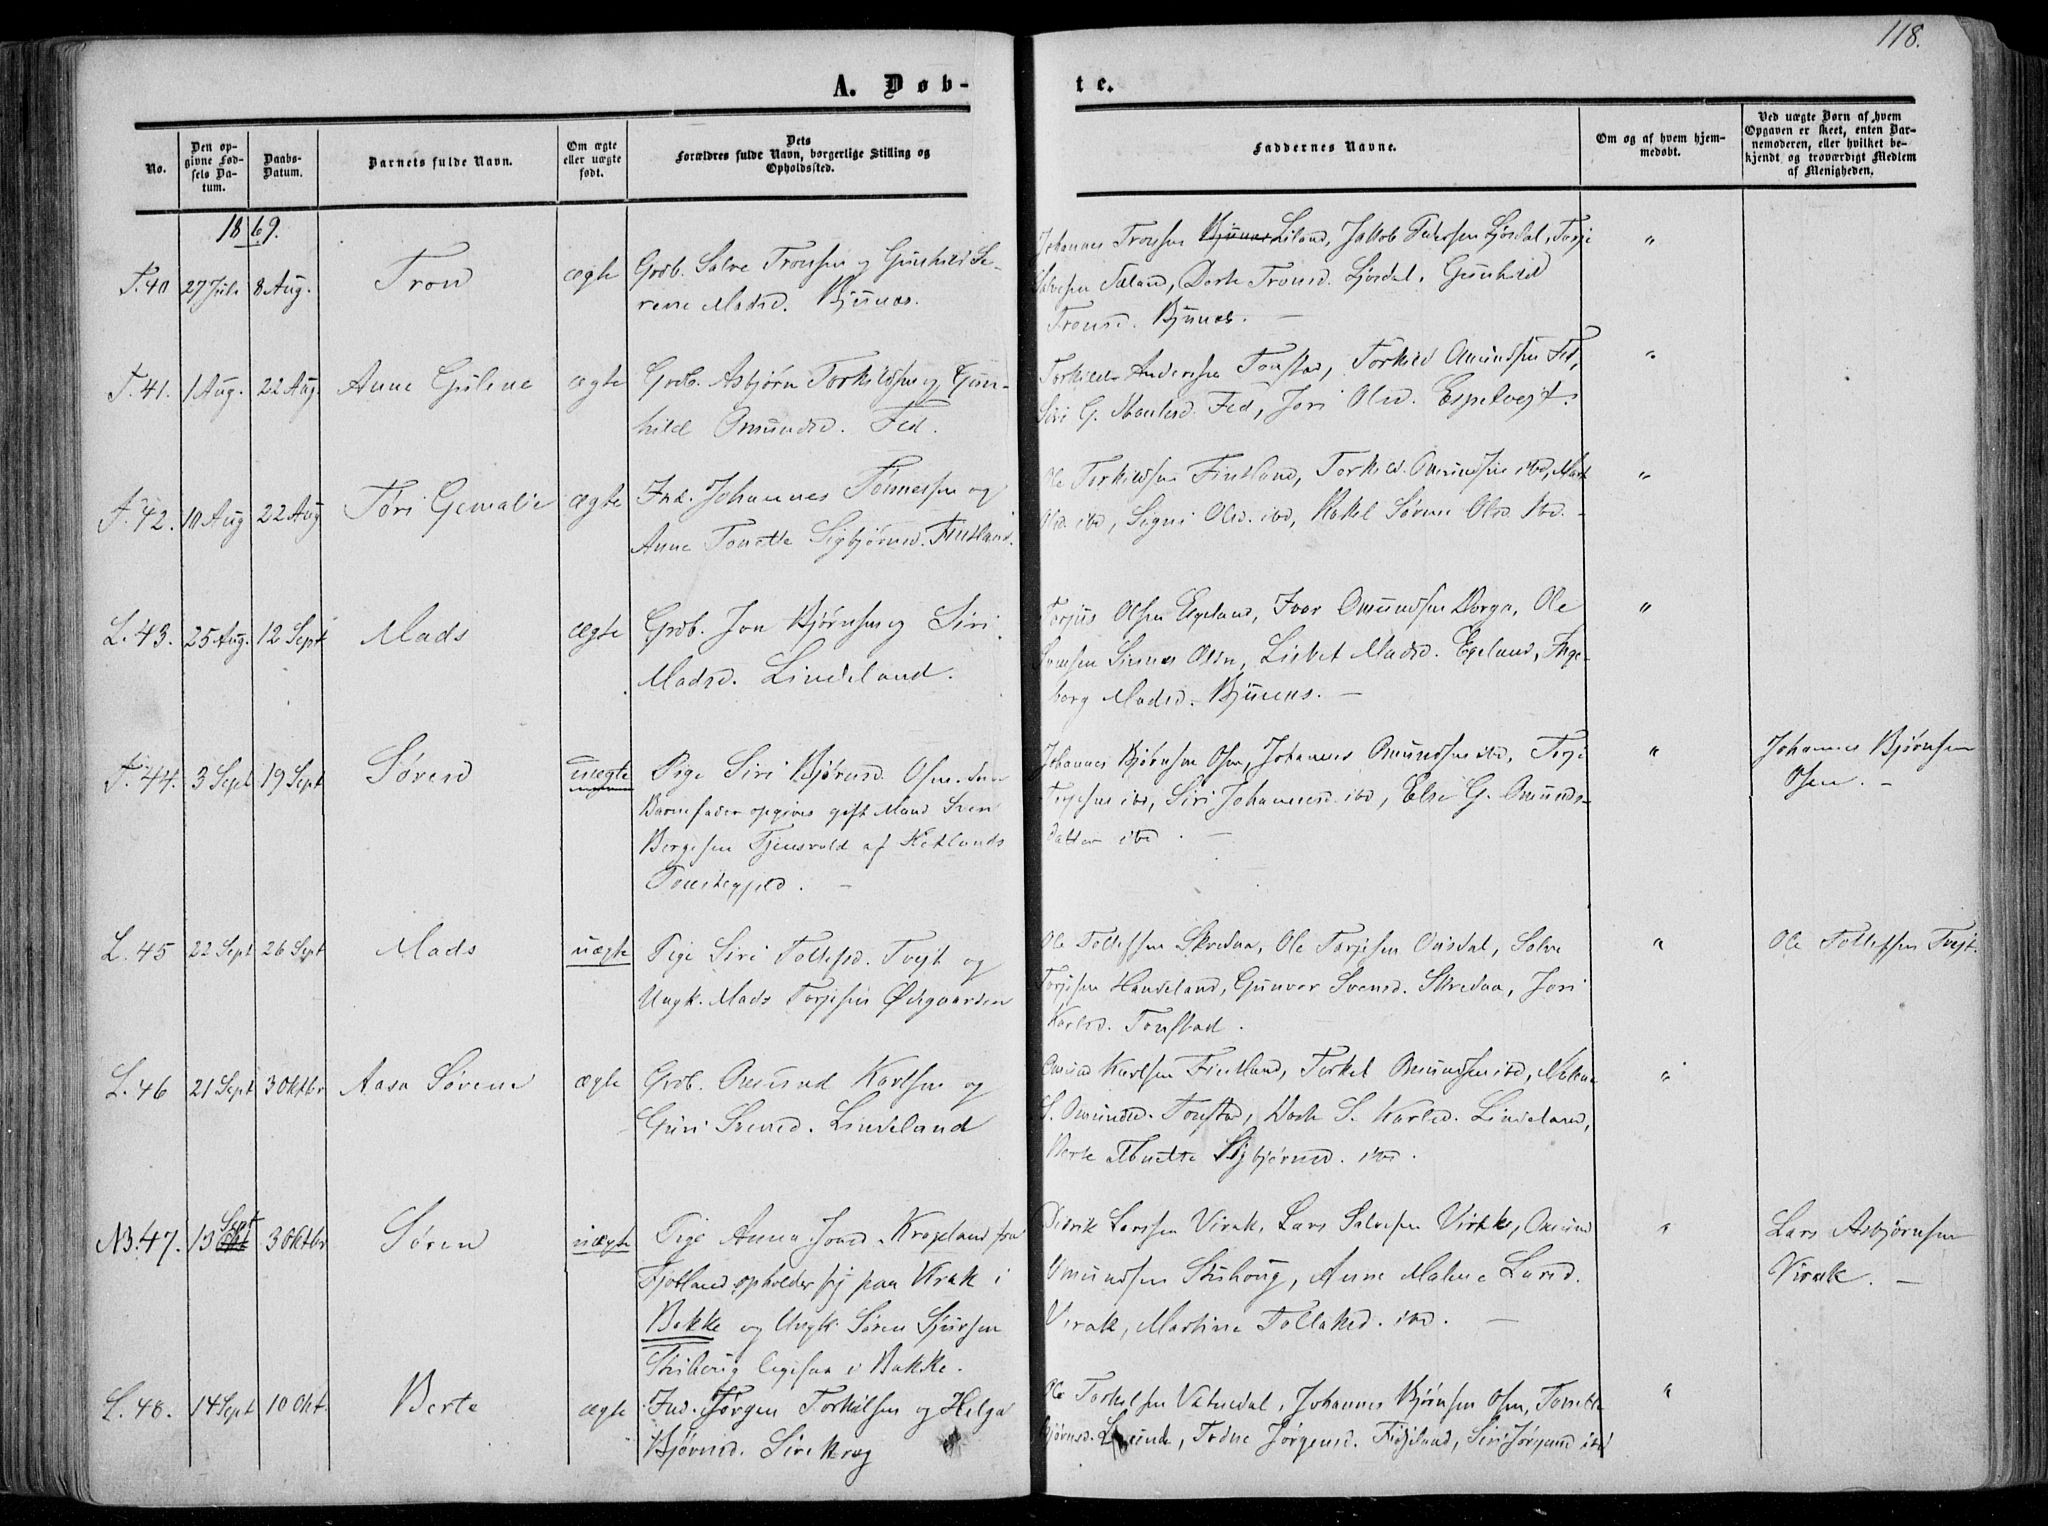 118.
A. Døb-
te.
No.
Den op-
givne Fød-
sels Da-
tum.
Daabs-
Datum.
Barnets fulde Navn.
Om ægte
eller uægte
født.
Dets
Forældres fulde Navn, borgerlige Stilling og
Opholdssted.
Faddernes Navne.
Om og af hvem hjem-
medøbt.
Ved uægte Børn af hvem
Opgaven er skeet, enten Bar-
nemoderen, eller hvilket be-
kjendt og troværdigt Medlem
af Menigheden.
1869.
T. 40 27 Juli 8 Aug. Tron ægte
Grdb. Salve Tronsen og Gunhild Se-
rene Madsd. Bjunes.
Johannes Tronsen Liland, Jakob Pedersen Ljosdal, Terje
Salvesen Tronsd. Ljosdal, Gunhild
Tronsd. Bjunes. —
"
T. 41. 1 Aug. 22 Aug. Anne Guline ægte
Grdb. Asbjørn Torkildsen og Gun-
hild Omundsd. Fed.
Torkild Andersen Tonstad, Torkild Omundsen Fed,
Siri G. Fed, Jori Olsd. Espetvejt.
"
T. 42. 10 Aug 22 Aug Tøri Gemalie ægte
Ind. Johannes Tønnessen og
Anne Tonette Sigbjørnsd. Fintland.
Ole Torkildsen Fintland, Torkild Omundsen ibd,
Olsd. ibd, Segni Olsd. ibd, Rakel Sørine Olsd. ibd. -
"
L. 43. 25 Aug. 12 Sept Mads ægte
Grdb. Jon Bjørnsen og Siri
Madsd. Lindeland.
Torjus Olsen Egeland, Ivar Omundsen Dorga, Ole
Sirnes Lisbet Madsd. Egeland, Inge-
borg Madsd. Bjunes. —
"
T. 44. 3 Sept 19 Sept Søren uægte
Pige Siri Bjørnsd. Osen. Som
Barnefader opgives gift Mand Sven
Bergesen Tjensvold af Hetlands
Præstegjeld. —
Johannes Bjørnsen Osen, Johannes Omundsen ibd, Terje
Terjesen ibd, Siri Johannesd. ibd, Else G. Omunds-
datter ibd. —
"
Johannes Bjørnsen
Osen. —
L. 45 22 Sept 26 Sept Mads uægte
Pige Siri Tollefsd. Tvejt og
Ungk. Mads Torjesen Ødegaarden
Ole Tollefsen Skredaa, Ole Torjesen Ousdal, Salve
Torjesen Haudeland, Gunvor Svensd. Skredaa, Jori
Karlsd. Tonstad.
"
Ole Tollefsen Tvejt.
L. 46 21 Sept 3 Oktbr Aasa Sørene ægte
Grdb. Omund Karlsen og
Guri Svensd. Lindeland
Omund Karlsen Fintland, Terkel Omundsen ibd,
S. Omundsd. Tonstad, S. Karlsd. Lindeland,
Berte Sigbjørnsd. ibd.
"
NB. 47. 13 Sept 3 Oktbr Søren uægte
Pige Anna Jonsd. Krageland fra
Fjotland opholder sig paa Virak i
Bakke og Ungk. Søren Sjursen
ligesaa i Bakke.
Didrik Larssen Virak, Lars Salvesen Virak, Omund
Omundsen Anne Malene Larsd.
Virak, Martine Tollaksd. ibd. —
"
Lars Asbjørnsen
Virak. —
L. 48. 14 Sept 10 Okt. Berte ægte
Ind. Jørgen Torkilsen og Helga
Bjørnsd. Sirekrog
Ole Torkelsen Vatnedal, Johannes Bjørnsen Osen, Tonette
Bjørnsd. Lunde, Trine Jørgensd. Siri Jørgensd ibd
"